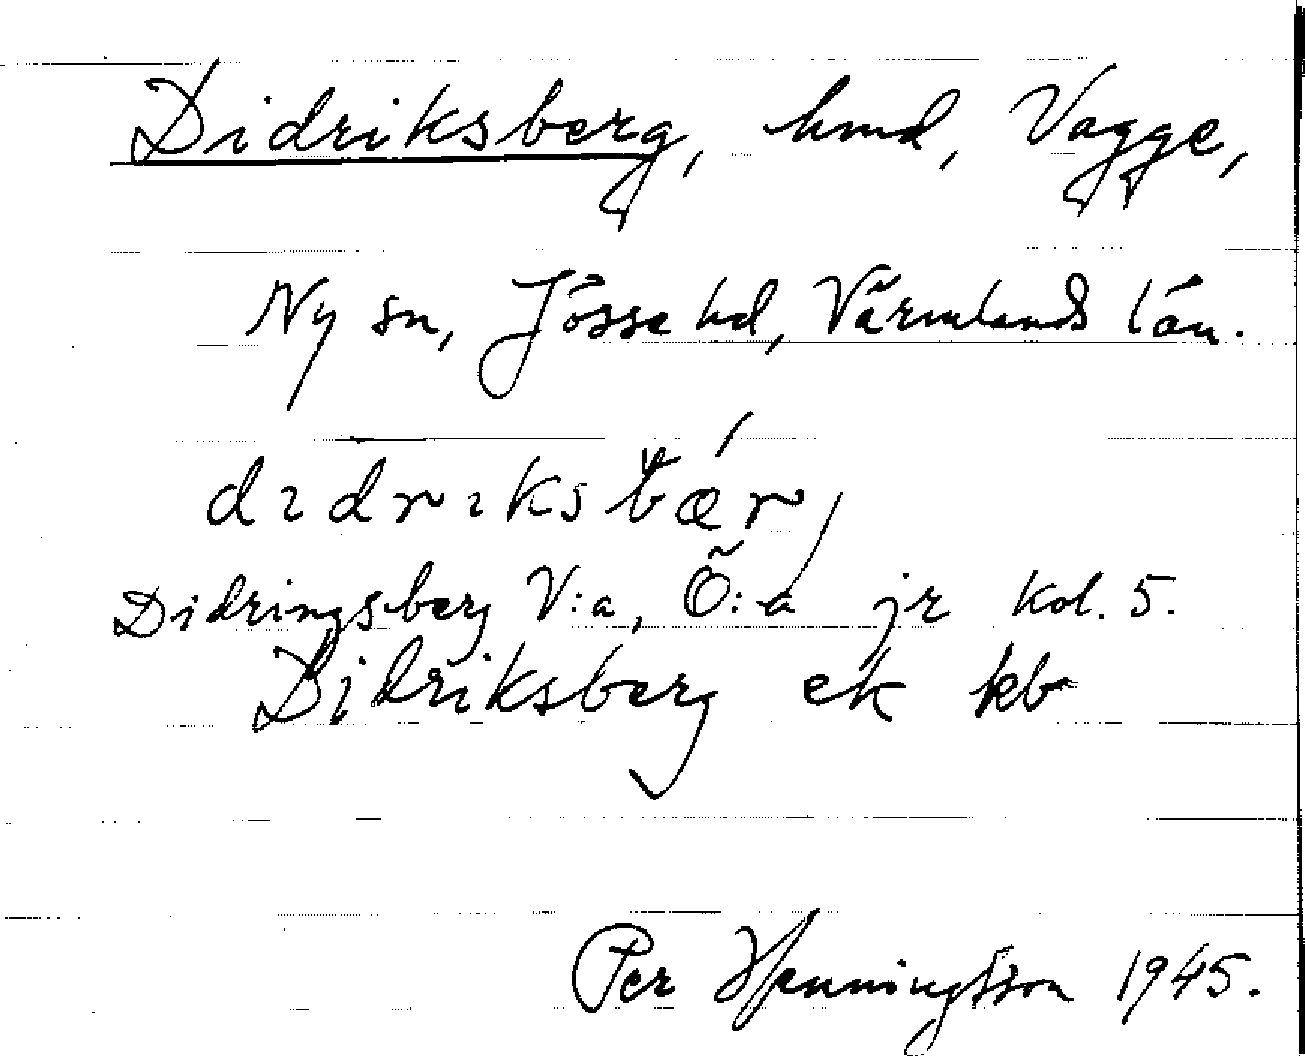 Didriksberg, hmd, Vagge,
Ny sn, Jösse hd, Värmlands län.
didriksbær,
Didringsberg V:a, Ö:a jr kol. 5.
Didriksberg ek kb
Per Henningsson 1945.